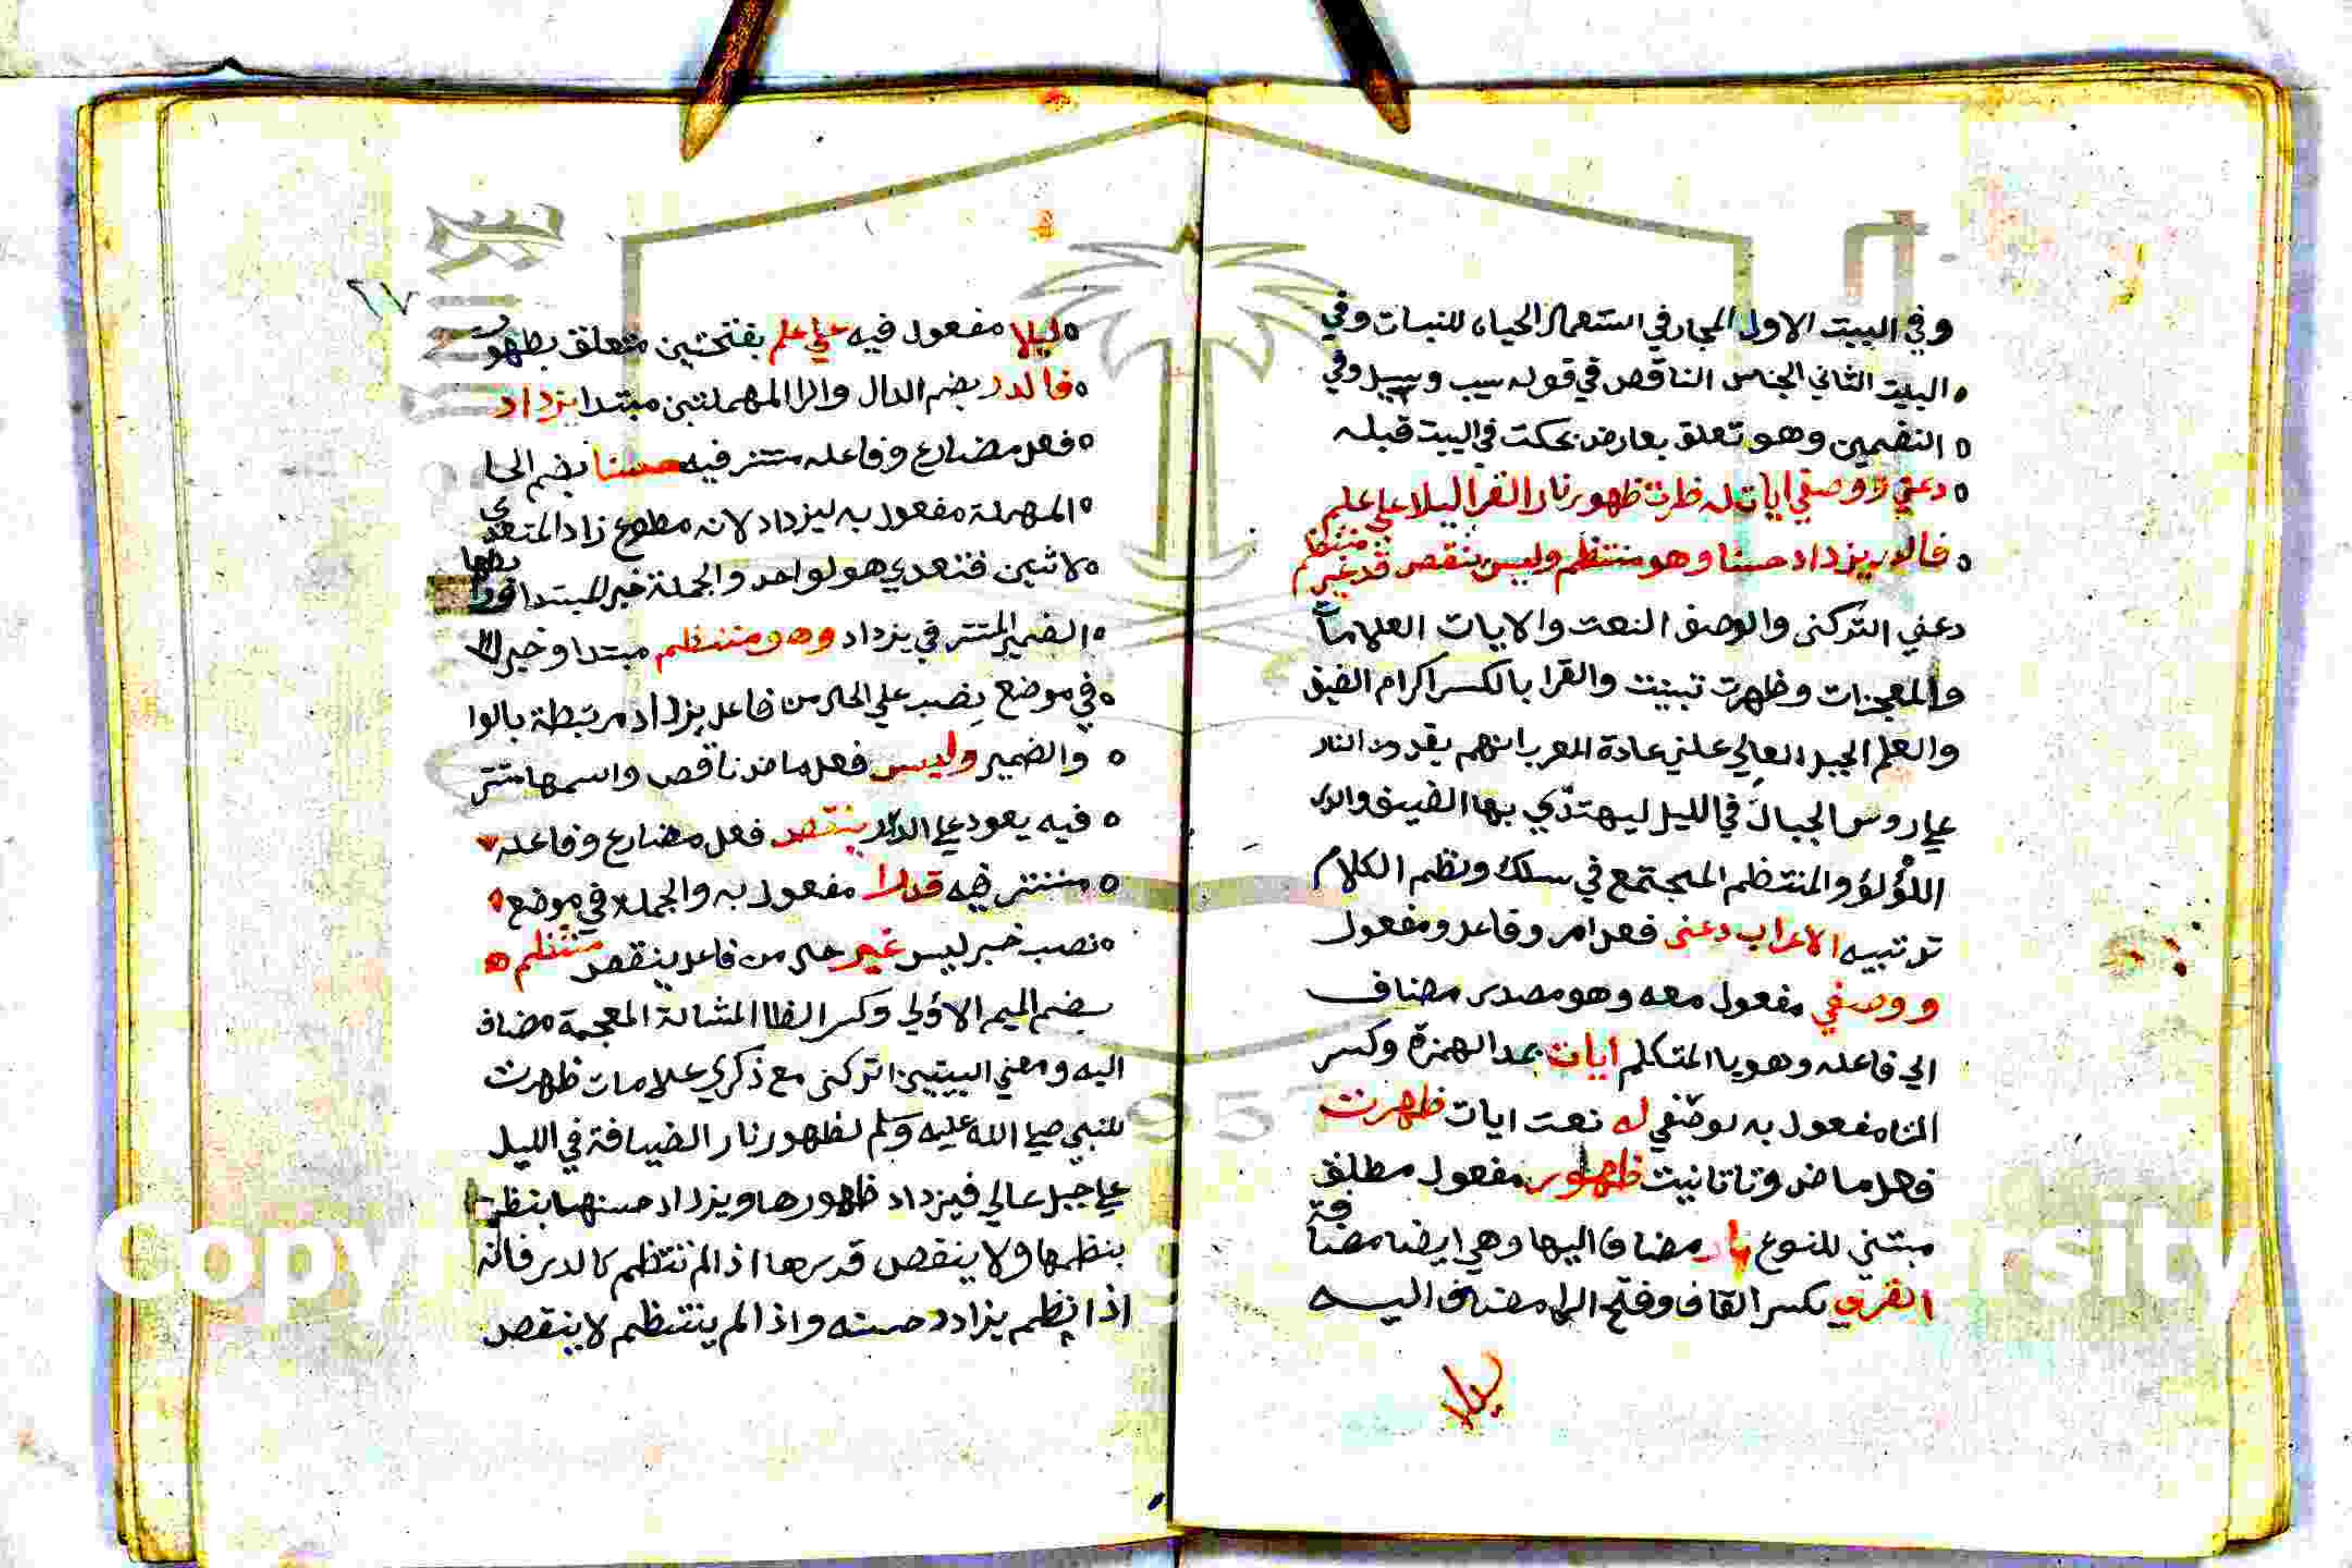 وفي البيت الاول المجاز في استعمال الحياه للنبات وفي
البيت الثاني الجناس الناقص في قوله سيب وسيل وفي
التضمين وهو تعلق بعارض بحكت في البيت قبله
دعني ووصفي ايات له ظهرت ظهور نار القرا ليلا علي علم
فالدر يزداد حسنا وهو منتظم وليس ينقص قدر غير منتظم
دعني اتركني والوصف النعت والايات العلامات
والمعجزات وظهرت تبينت والقرا بالكسر اكرام الضيف
والعلم الجبل العالي علي عادة العرب انهم يقدون النار
علي روس الجبال في الليل ليهتدي بها الضيف والدر
اللؤلؤ والمنتظم المجتمع في سلك ونظم الكلام
ترتيبه الاعراب دعني فعل امر وفاعل ومفعول
ووصفي مفعول معه وهو مصدر مضاف
الي فاعله وهو يا المتكلم ايات بمد الهمزة وكسر
التا مفعول به لوصفي له نعت ايات ظهرت
فعل ماض وتا تانيت ظهور مفعول مطلق
مبتني للنوع نار مضاف اليها وهي ايضا مضافة
القري بكسر القاف وفتح الرا مضاف اليه
ليلا
٢٧
ليلا مفعول فيه علي علم بفتحتين متعلق بظهور
فالدر بضم الدال والرا المهملتين مبتدا يزداد
فعل مضارع وفاعله مستتر فيه حسنا بضم الحا
المهملة مفعول به ليزداد لانه مطوع زاد المتعدي
لاثنين فتعدي هو لواحد والجملة خبر المبتدا
الضمير المستتر في يزداد وهو منتظم مبتدا وخبر
في موضع نصب علي الحال من فاعل يزداد مرتبطة بالوا
والضمير وليس فعل ماض ناقص واسمها مستتر
فيه يعود علي الدر ينقص فعل مضارع وفاعله
مستتر فيه قدرا مفعول به والجملة في موضع
نصب خبر ليس غير حال من فاعل ينقص منتظم
بضم الميم الاولي وكسر الظا المشالة المعجمة مضاف
اليه ومعني البيتين اتركني مع ذكري علامات ظهرت
للنبي صلي الله عليه وسلم لظهور نار الضيافة في الليل
علي جبل عالي فيزداد ظهورها ويزداد حسنها بنظم
بنظمها ولا ينقص قدرها اذا لم تنتظم كالدر فانه
اذا نظم يزادد حسنه واذا لم ينتظم لا ينقص